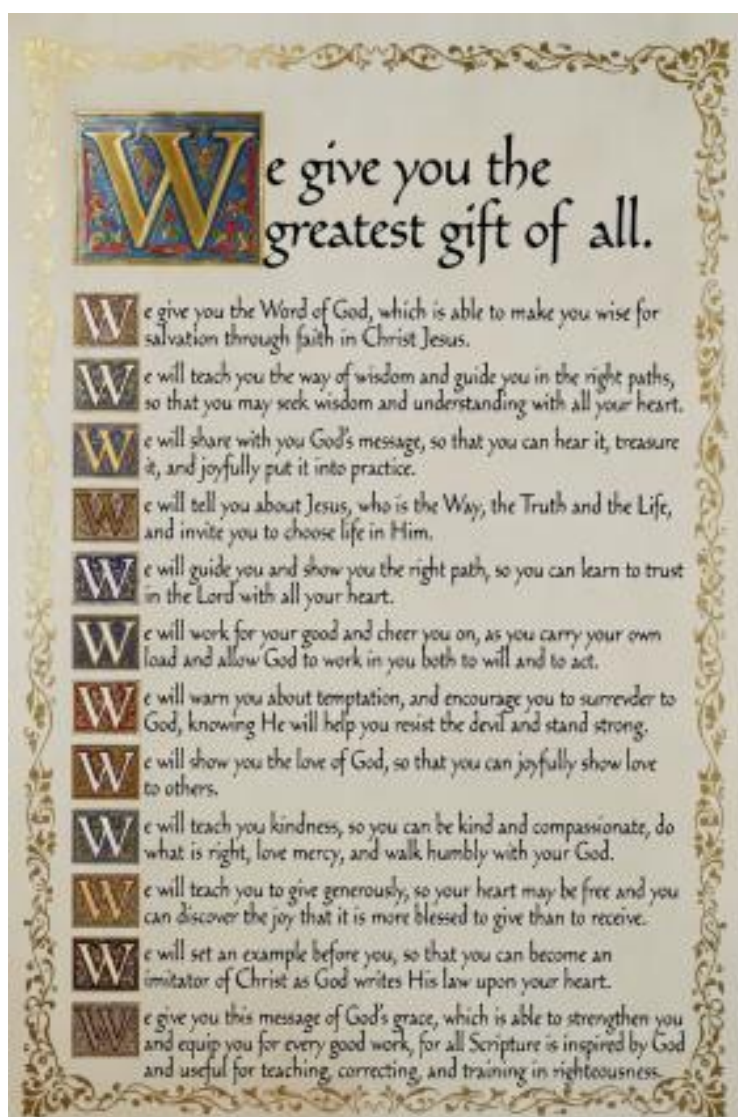 We give you the
greatest gift of all.
We give you the Word of God, which is able to make you wise for
salvation through faith in Christ Jesus.
We will teach you the way of wisdom and guide you in the right paths,
so that you may seek wisdom and understanding with all your heart.
We will share with you God's message, so that you can hear it, treasure
it, and joyfully put it into practice.
We will tell you about Jesus, who is the Way, the Truth and the Life,
and invite you to choose life in Him.
We will guide you and show you the right path, so you can learn to trust
in the Lord with all your heart.
We will work for your good and cheer you on, as you carry your own
load and allow God to work in you both to will and to act.
We will warn you about temptation, and encourage you to surrevder to
God, knowing He will help you resist the devil and stand strong.
We will show you the love of God, so that you can joyfully show love
to others.
We will teach you kindness, so you can be kind and compassionate, do
what is right, love mercy, and walk humbly with your God.
We will teach you to give generously, so your heart may be free and you
can discover the joy that it is more blessed to give than to receive.
We will set an example before you, so that you can become an
imitator of Christ as God writes His law upon your heart.
We give you this message of God's grace, which is able to strengthen you
and equip you for every good work, for all Scripture is inspired by God
and useful for teaching, correcting, and training in righteousness.